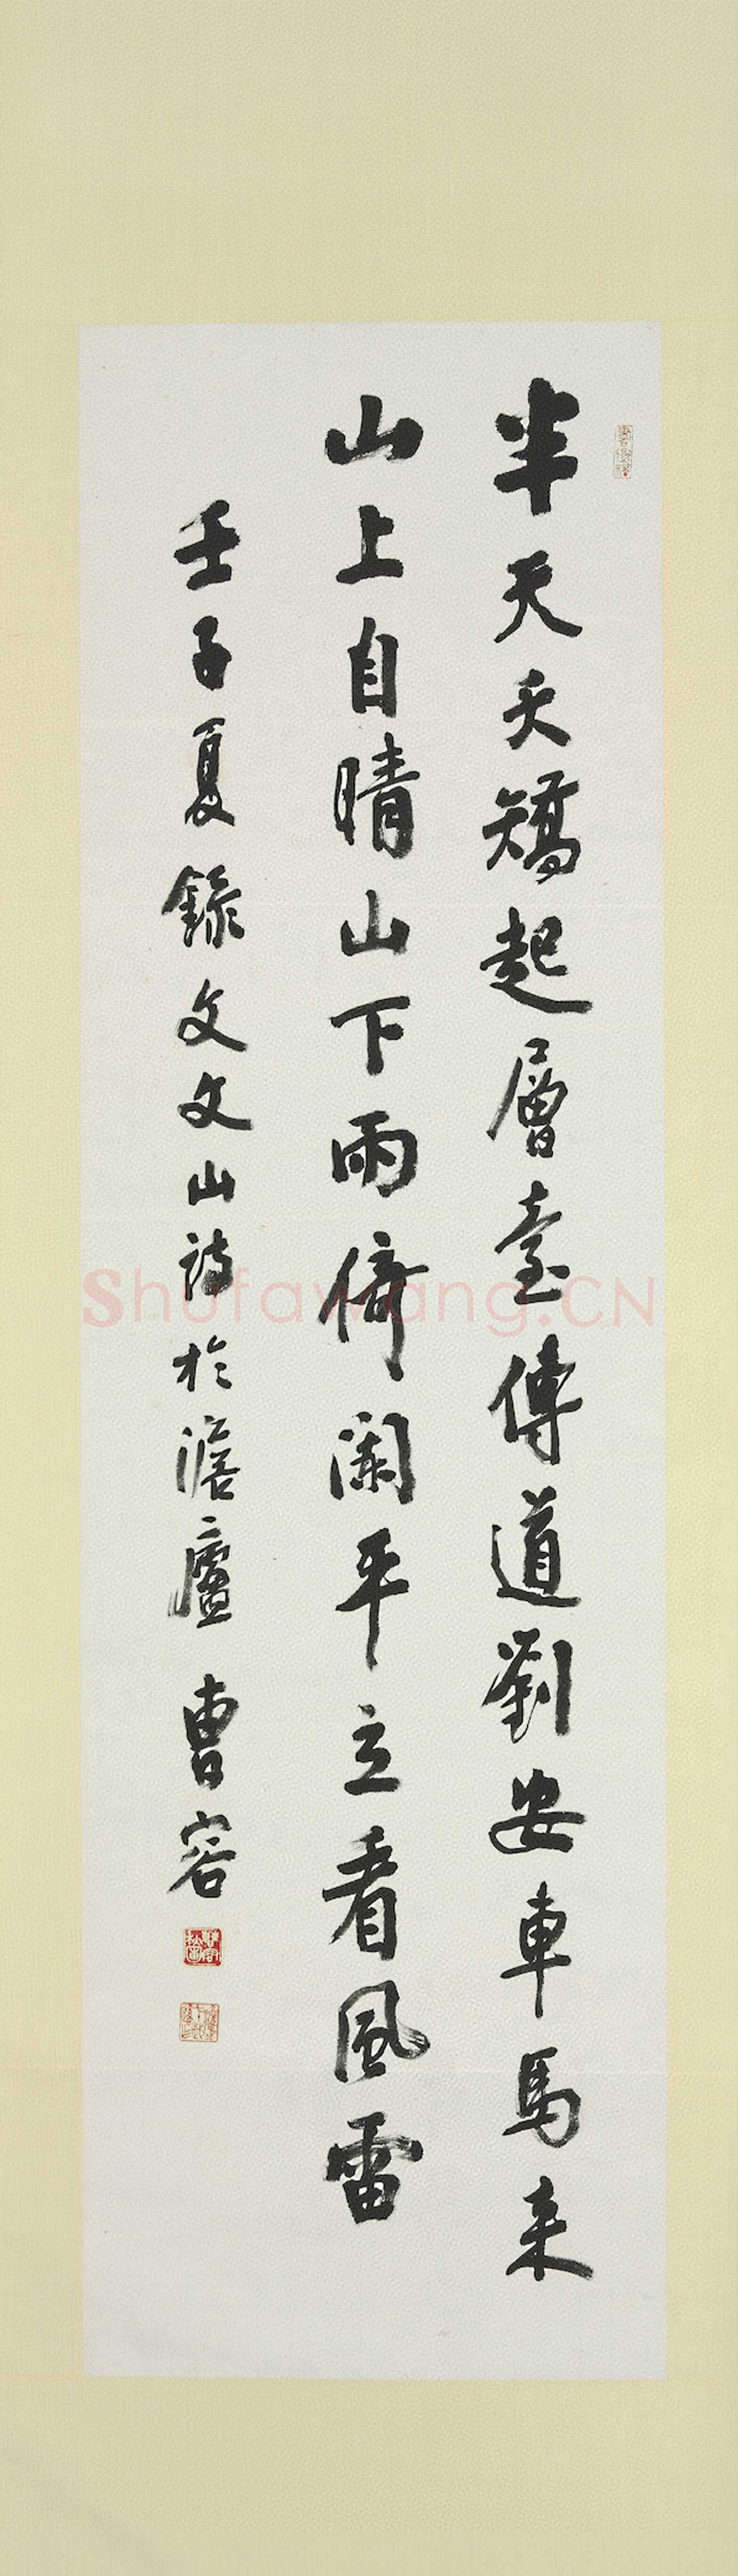 半天夭矯起層臺傳道劉安車馬来
山上自晴山下雨倚闌平立看風雷
壬子夏錄文文山詩於澹廬 曹容
Shufawang.CN